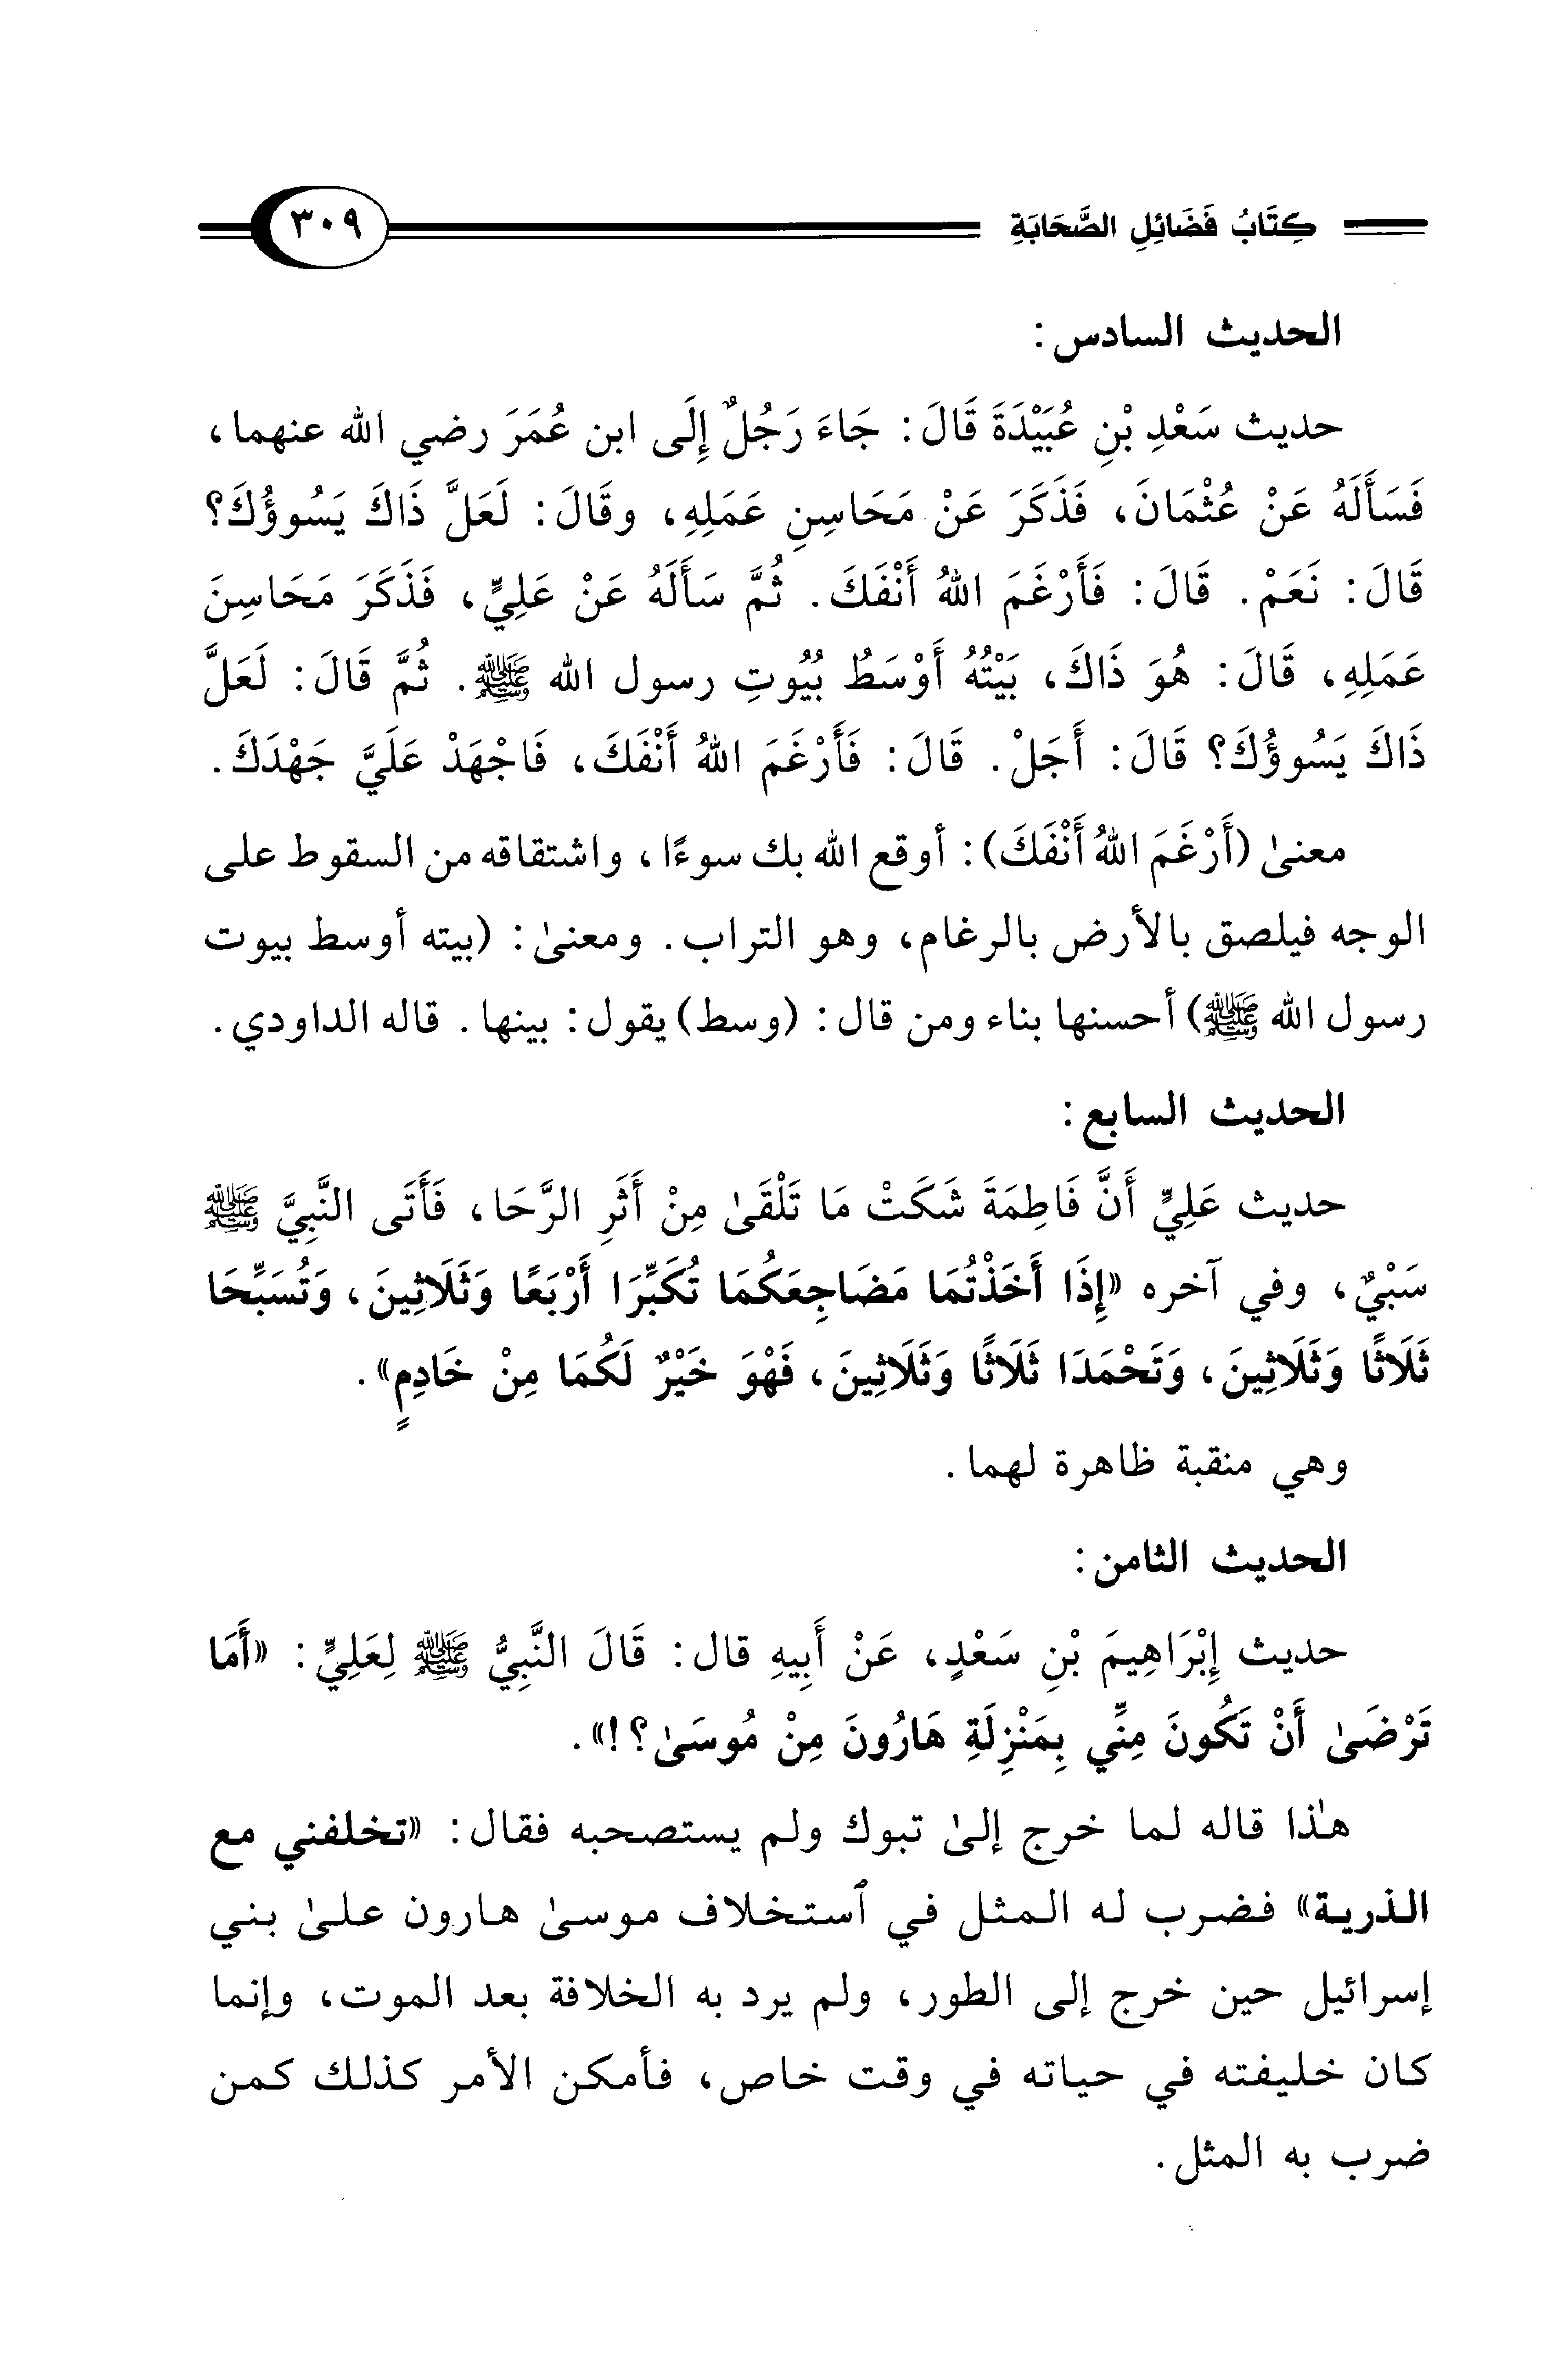 كِتَابُ فَضَائِلِ الصَّحَابَةِ ٣٠٩
الحديث السادس:
حديث سَعْدِ بْنِ عُبَيْدَةَ قَالَ: جَاءَ رَجُلٌ إِلَى ابن عُمَرَ رضي الله عنهما،
فَسَأَلَهُ عَنْ عُثْمَانَ، فَذَكَرَ عَنْ مَحَاسِنِ عَمَلِهِ، وقَالَ: لَعَلَّ ذَاكَ يَسُوؤُكَ؟
قَالَ: نَعَمْ. قَالَ: فَأَرْغَمَ اللهُ أَنْفَكَ. ثُمَّ سَأَلَهُ عَنْ عَلِيٍّ، فَذَكَرَ مَحَاسِنَ
عَمَلِهِ، قَالَ: هُوَ ذَاكَ، بَيْتُهُ أَوْسَطُ بُيُوتِ رسول الله ﷺ. ثُمَّ قَالَ: لَعَلَّ
ذَاكَ يَسُوؤُكَ؟ قَالَ: أَجَلْ. قَالَ: فَأَرْغَمَ اللهُ أَنْفَكَ، فَاجْهَدْ عَلَيَّ جَهْدَكَ.
معنىٰ (أَرْغَمَ اللهُ أَنْفَكَ): أوقع الله بك سوءًا، واشتقاقه من السقوط على
الوجه فيلصق بالأرض بالرغام، وهو التراب. ومعنىٰ: (بيته أوسط بيوت
رسول الله ﷺ) أحسنها بناء ومن قال: (وسط) يقول: بينها. قاله الداودي.
الحديث السابع:
حديث عَلِيٍّ أَنَّ فَاطِمَةَ شَكَتْ مَا تَلْقَىٰ مِنْ أَثَرِ الرَّحَا، فَأَتَى النَّبِيَّ ﷺ
سَبْيٌ، وفي آخره «إِذَا أَخَذْتُمَا مَضَاجِعَكُمَا تُكَبِّرَا أَرْبَعًا وَثَلَاثِينَ، وَتُسَبِّحَا
ثَلَاثًا وَثَلَاثِينَ، وَتَحْمَدَا ثَلَاثًا وَثَلَاثِينَ، فَهْوَ خَيْرٌ لَكُمَا مِنْ خَادِمٍ».
وهي منقبة ظاهرة لهما.
الحديث الثامن:
حديث إِبْرَاهِيمَ بْنِ سَعْدٍ، عَنْ أَبِيهِ قال: قَالَ النَّبِيُّ ﷺ لِعَلِيٍّ: «أَمَا
تَرْضَىٰ أَنْ تَكُونَ مِنِّي بِمَنْزِلَةِ هَارُونَ مِنْ مُوسَىٰ؟!».
هٰذا قاله لما خرج إلىٰ تبوك ولم يستصحبه فقال: «تخلفني مع
الذرية» فضرب له المثل في ٱستخلاف موسىٰ هارون علىٰ بني
إسرائيل حين خرج إلى الطور، ولم يرد به الخلافة بعد الموت، وإنما
كان خليفته في حياته في وقت خاص، فأمكن الأمر كذلك كمن
ضرب به المثل.